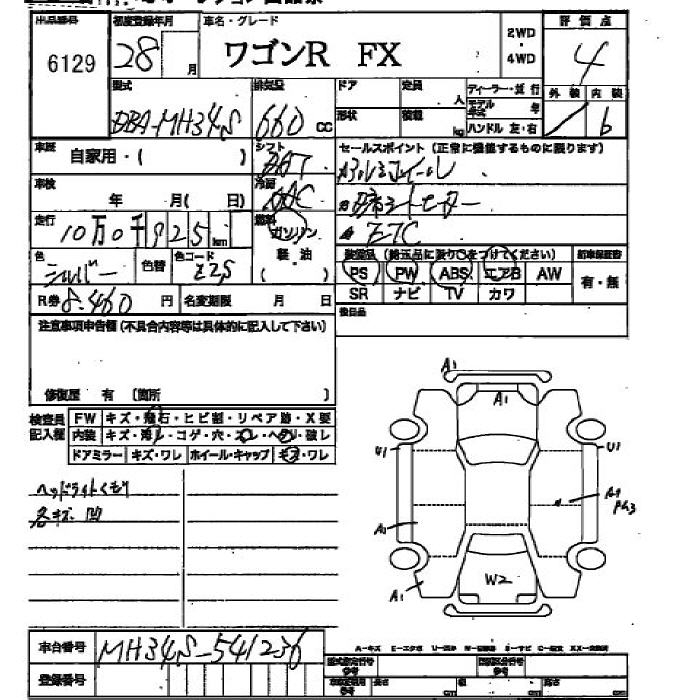 出品番号 初度登録年月 車名・グレード 2WD・4WD 評価点
6129 28 月 ワゴンR FX 4
型式 排気量 ドア 定員 人 ディーラー・並行 外装 内装
DBA-MH34S 660 CC 形状 積載 kg モデル年式 年 ハンドル 左・右 b
車歴 自家用・( ) シフト セールスポイント (正常に機能するものに限ります)
アルミホイール
車検 年 月( 日) 冷房 AAC
シートヒーター
走行 10万0千925km 燃料 ガソリン 軽油 ( )
ETC
装備品 (純正品に限り○をつけてください) 新車保証書
色 シルバー 色替 色コード Z2S
PS PW ABS エアB AW 有・無
SR ナビ TV カワ
R券 8.460 円 名変期限 月 日
後日品
注意事項申告欄 (不具合内容等は具体的に記入して下さい)
修復歴 有 〔箇所 〕
検査員記入欄
FW キズ・飛石・ヒビ割・リペア跡・X要
内装 キズ・汚レ・コゲ・穴・スレ・ヘタリ・破レ
ドアミラー キズ・ワレ ホイール・キャップ キズ・ワレ
ヘッドライトくもり
各キズ 凹
A1
A1
U1 U1
A1
A1
W2
A1
車台番号 MH34S-541236
A-キズ E-エクボ U-凹み W-補修跡 S-サビ C-腐食 XX-交換済
登録番号
型式指定番号 参考 類別区分番号 参考
長さ cm 幅 cm 高さ cm